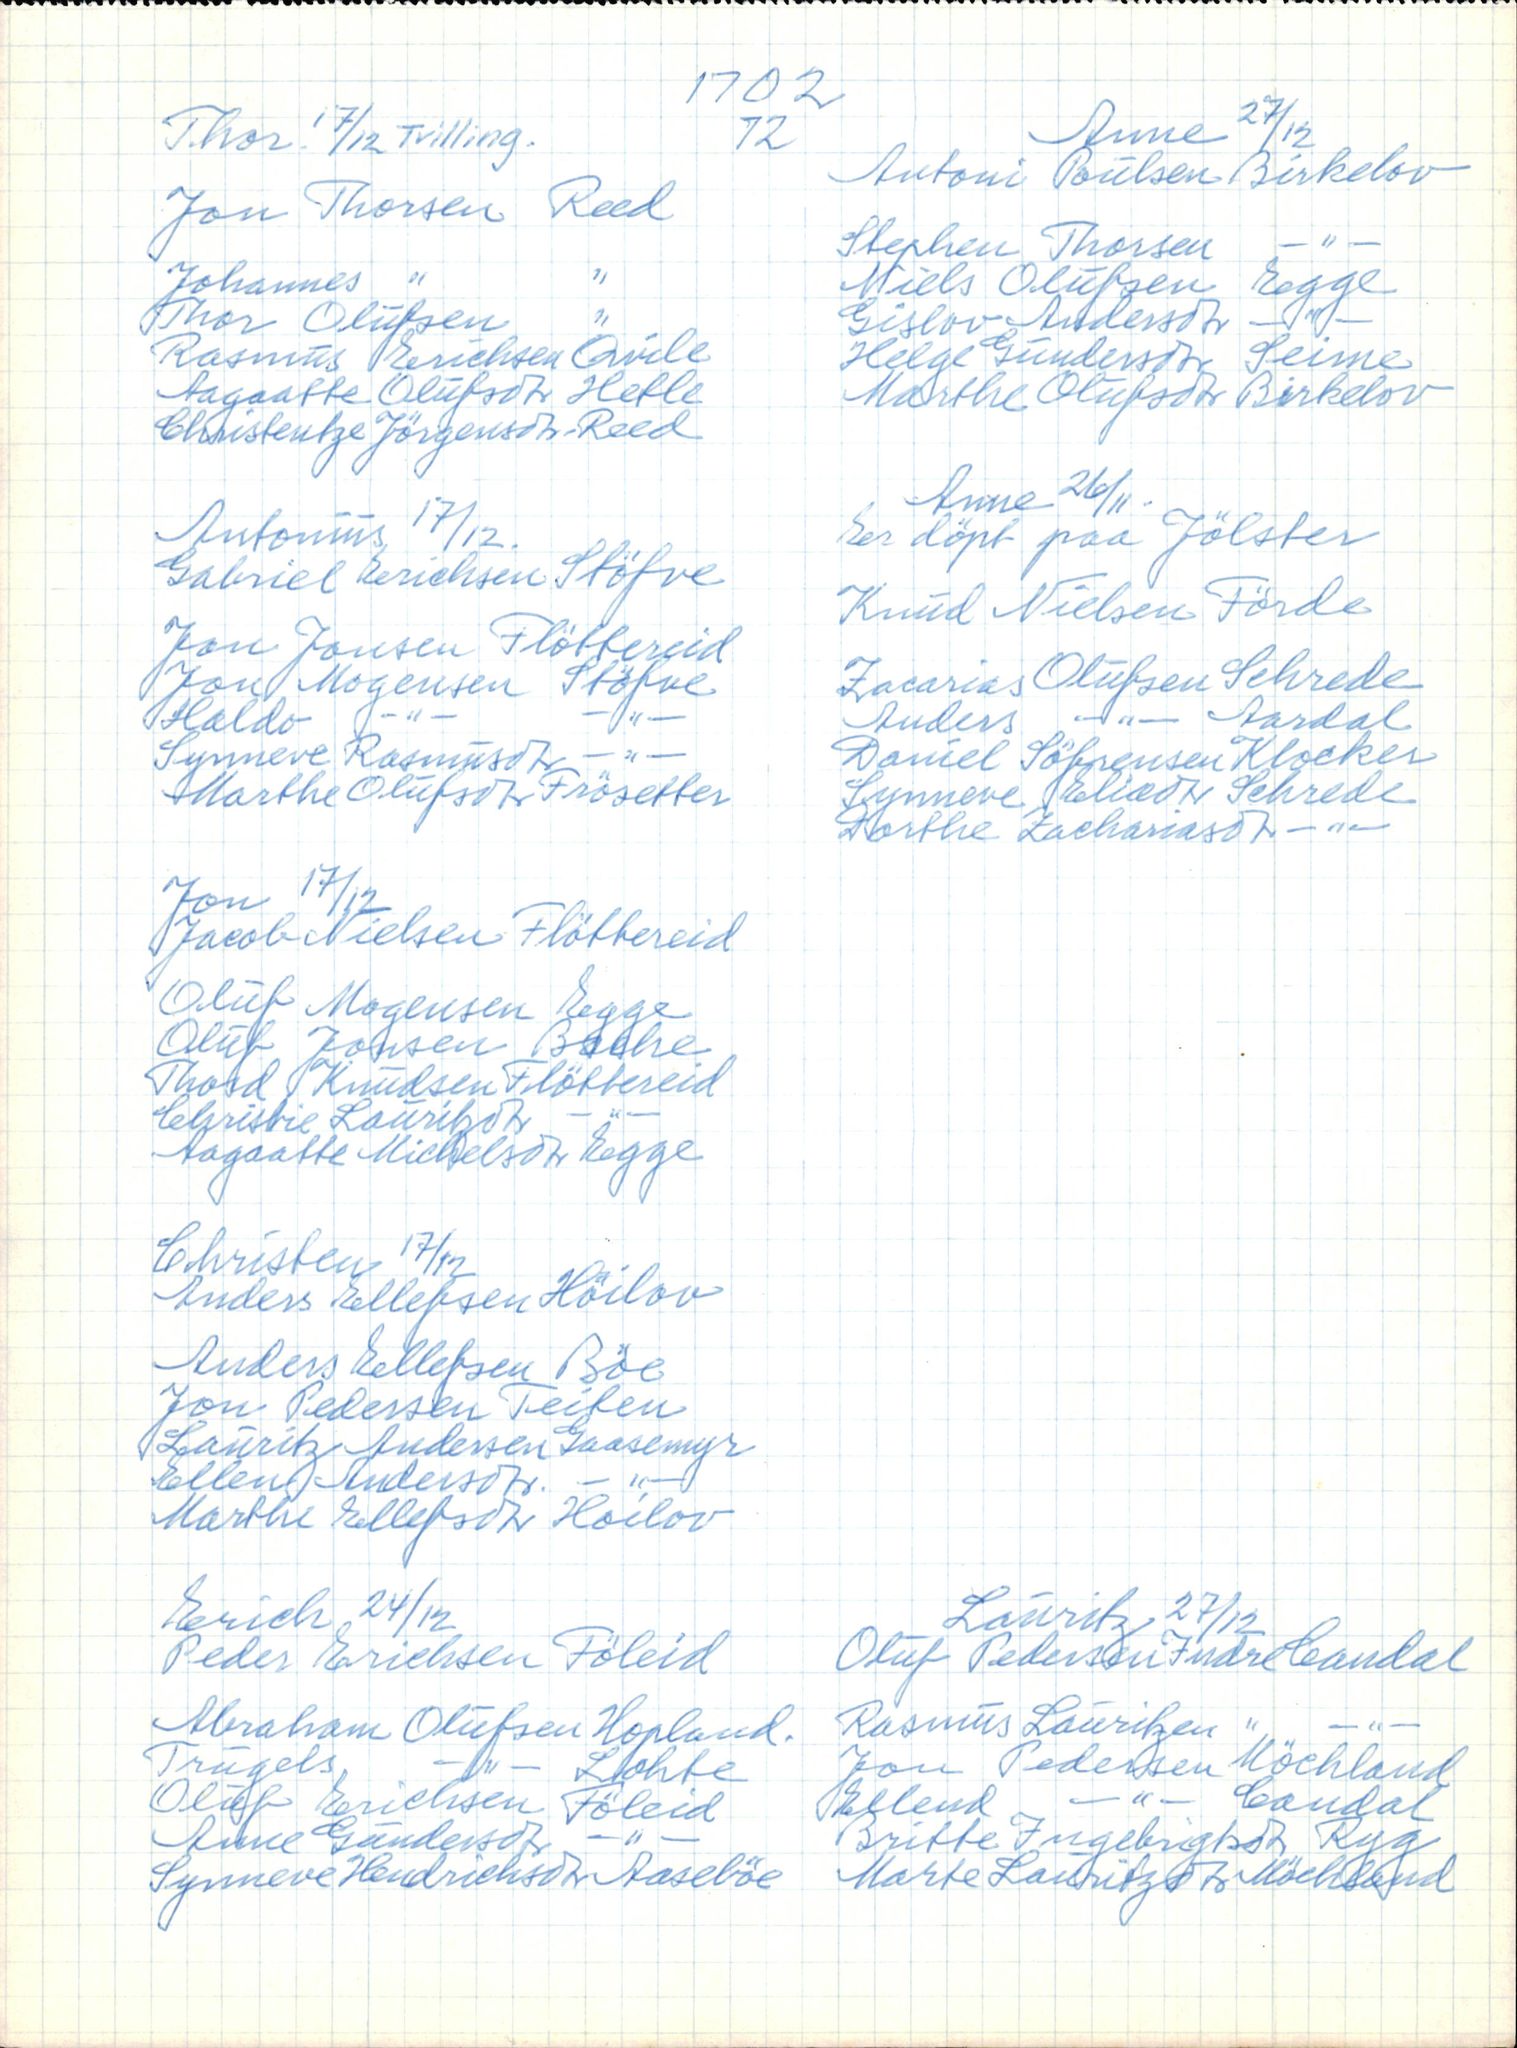 1702
72
Thor. 17/12 Tvilling.
Jon Thorsen Reed
Johannes " "
Thor Olüfsen "
Rasmüs Erichsen Qvile
Aagaatte Olüfsdtr Hetle
Christentze Jörgensdtr. Reed
Antoniüs 17/12.
Gabriel Erichsen Stöfve
Jon Jonsen Flöttereid
Jon Mogensen Stöfve
Haldo -"- -"-
Synneve Rasmüsdtr -"-
Marthe Olüfsdtr Frösetter
Jon 17/12
Jacob Nielsen Flöttereid
Olüf Mogensen Egge
Olüf Jonsen Bache
Thord Knüdsen Flöttereid
Christie Laüritzdtr -"-
Aagaatte Michelsdtr Egge
Christen 17/12
Anders Ellefsen Höilov
Anders Ellefsen Böe
Jon Pedersen Teiten
Laüritz Andersen Gaasemyr
Ellen Andersdtr. -"-
Marthe Ellefsdtr Höilov
Erich 24/12
Peder Erichsen Föleid
Abraham Olüfsen Hopland.
Trügels -"- Lohte
Olüf Erichsen Föleid
Anne Gündersdtr -"-
Synneve Hendrichsdtr Aaseböe
Anne 27/12
Antoni Poülsen Birkelov
Stephen Thorsen -"-
Niels Olüfsen Egge
Gislov Andersdtr -"-
Helge Gündersdtr Seime
Marthe Olüfsdtr Birkelov
Anne 26/11.
Er döpt paa Jölster
Knüd Nielsen Förde
Zacarias Olüfsen Schrede
Anders -"- Aardal
Daniel Söfrensen Klocker
Synneve Eliædtr Schrede
Dorthe Zachariasdtr -"-
Laüritz 27/12
Olüf Pedersen Indre Candal
Rasmüs Laüritzen " -"-
Jon Pedersen Möchland
Ellend -"- Candal
Britte Ingebrigtsdtr Ryg
Marte Laüritzdtr Möchland